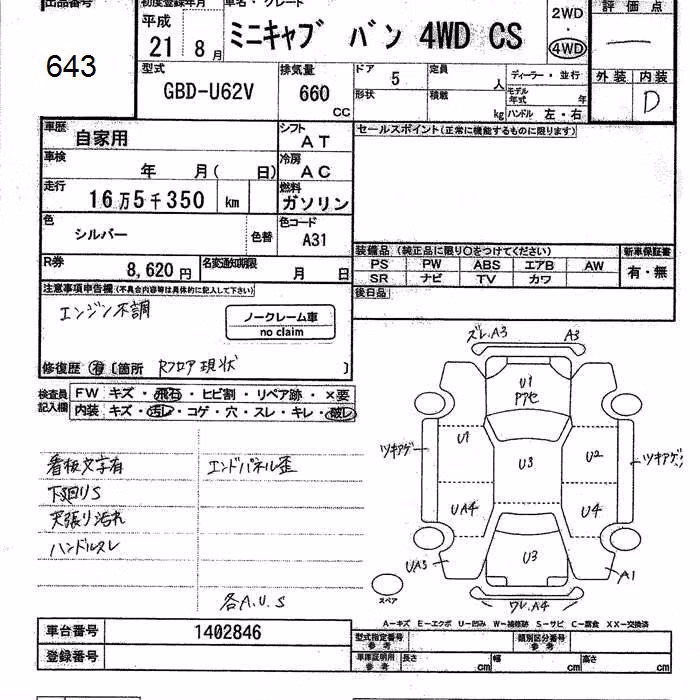 出品番号 初度登録年月 車名・グレード 評価点
643 平成 21 8月 ミニキャブ バン 4WD CS 2WD・4WD
型式 GBD-U62V 排気量 660 CC ドア 5 定員 人 ディーラー・並行 外装 内装 D
形状 積載 kg モデル年式 年 ハンドル 左・右
車歴 自家用 シフト AT セールスポイント(正常に機能するものに限ります)
車検 年 月( 日) 冷房 AC
走行 16万5千350 km 燃料 ガソリン
色 シルバー 色替 色コード A31
装備品 (純正品に限り○をつけてください) 新車保証書
PS PW ABS エアB AW 有・無
SR ナビ TV カワ
R券 8,620円 名変通知期限 月 日
後日品
注意事項申告欄(不具合内容等は具体的に記入して下さい)
エンジン不調
ノークレーム車
no claim
修復歴 有 [箇所 Rフロア現状 ]
検査員記入欄 FW キズ・飛石・ヒビ割・リペア跡・×要
内装 キズ・汚レ・コゲ・穴・スレ・キレ・破レ
看板文字有 エンドパネル歪
下回りS
天張り汚れ
ハンドルスレ
各A.U.S
ズレ.A3 A3
U1
アアセ
ツキアゲ U1 U3 U2 ツキアゲ
UA4 U4
UA3 U3 A1
スペア ワレ.A4
A―キズ E―エクボ U―凹み W―補修跡 S―サビ C―腐食 XX―交換済
車台番号 1402846 型式指定番号 参考 類別区分番号 参考
登録番号 車庫証明用 参考 長さ cm 幅 cm 高さ cm